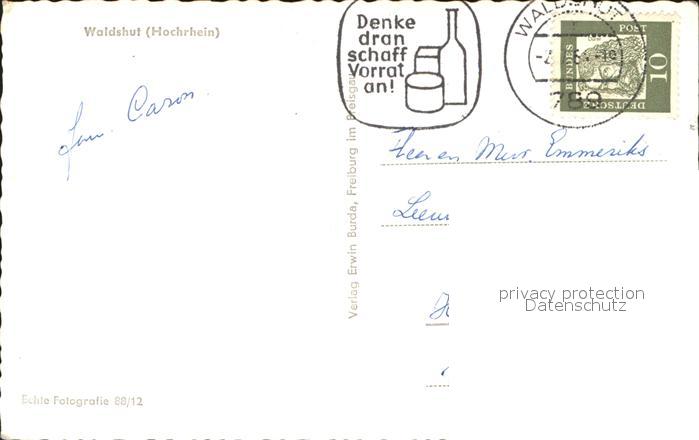 Waldshut (Hochrhein)
Denke
dran
schaff
Vorrat
an!
WALDSHUT
789
DEUTSCHE
BUNDES
POST
10
Fam. Caron.
Verlag Erwin Burda, Freiburg im Breisgau
Heer en Mevr. Emmeriks
privacy protection
Datenschutz
Echte Fotografie 88/12